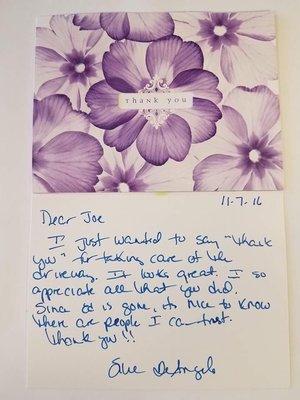 THANK YOU
11-7-16
Dear Joe
I just wanted to say "thank
you" for taking care of the
driveway. It looks great. I so
appreciate all what you did.
Since Ed is gone, its nice to know
there are people I can trust.
Thank you!!
Sue DeAngelo